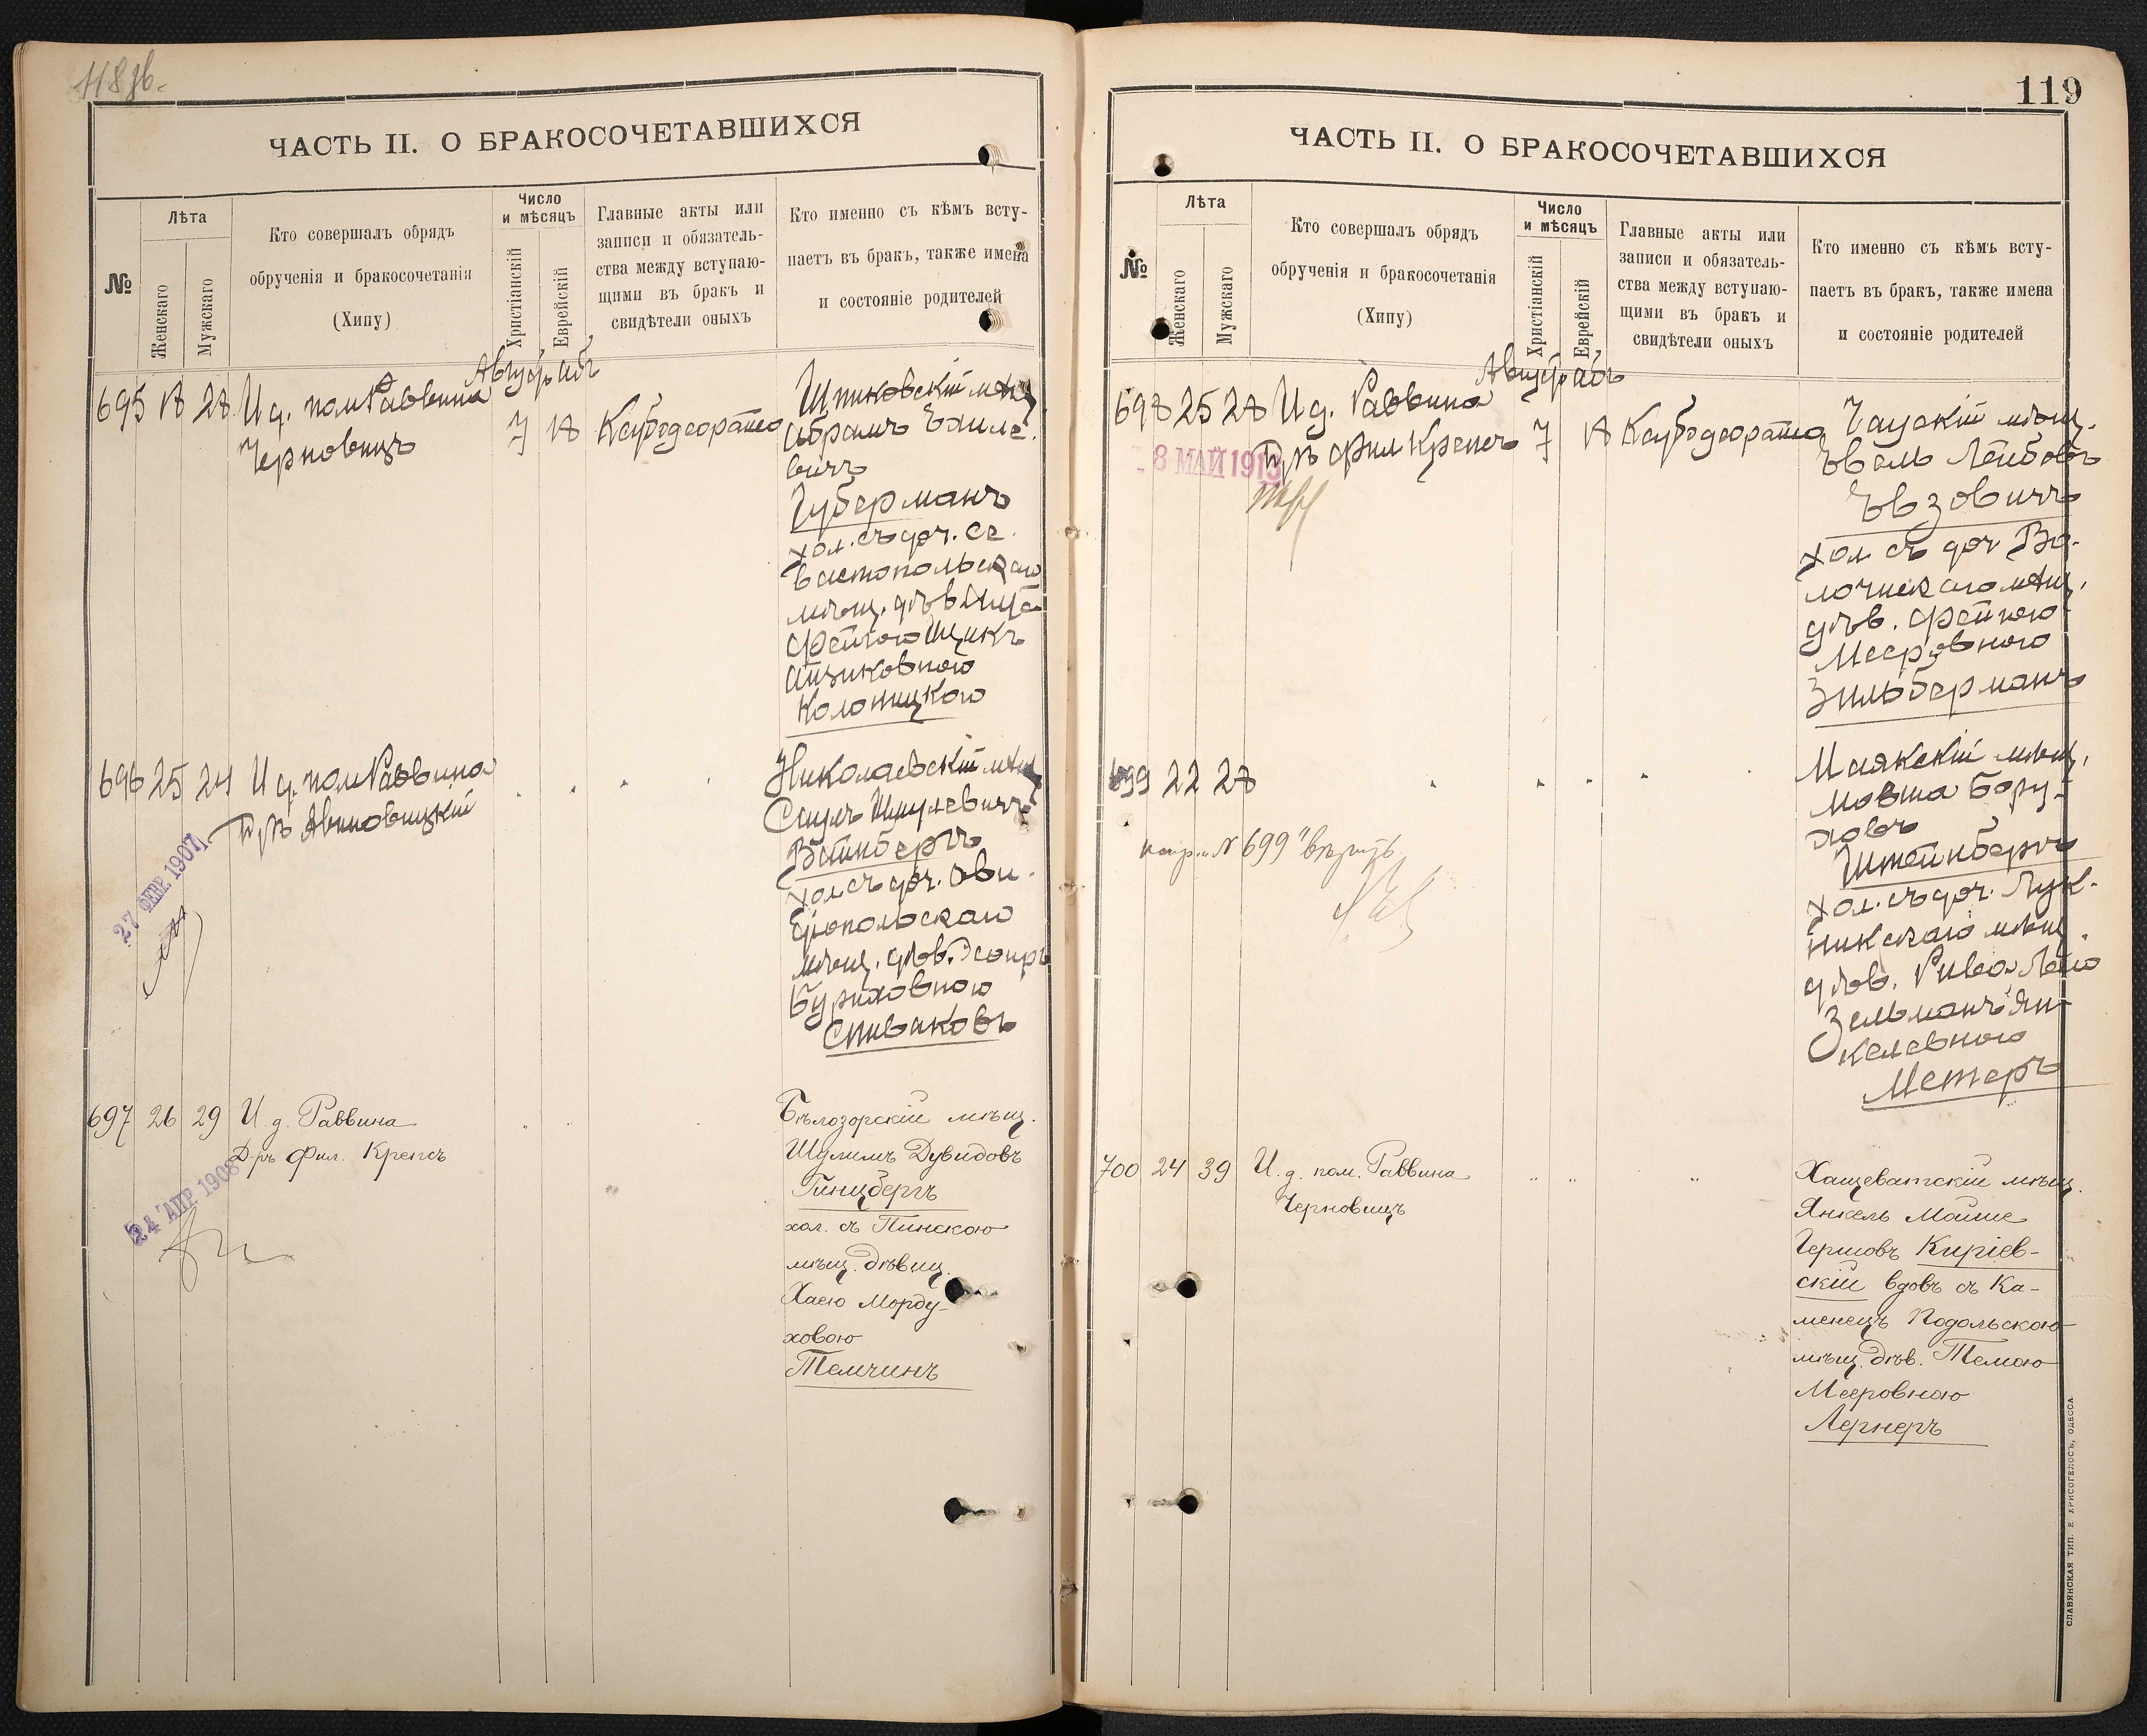 ЧАСТЬ II. О БРАКОСОЧЕТАВШИХСЯ
№
Лѣта
Женскаго
Мужскаго
Кто совершалъ обрядъ
обрученія и бракосочетанія
(Хипу)
Число
и мѣсяцъ
Христіанскій
Еврейскій
Главные акты или
записи и обязатель-
ства между вступаю-
щими въ бракъ и
свидѣтели оныхъ
Кто именно съ кѣмъ всту-
паетъ въ бракъ, также имена
и состояніе родителей
695 18 28 И д. пом Раввина
Черновицъ
7 18
мѣщ
Абрамъ
вичъ
Губерманъ
хол. съ доч. Се
вастопольскаго
мѣщ. дѣв
Фейгою Ицикъ
Ициковною
696 25 24 И д. пом Раввина
Д-ръ Авиновицкій
27 ФЕВР. 1907
Николаевскій мѣщ
Саулъ Шмулевичъ
Вейнбергъ
хол съ доч. Ови
діопольскаго
мѣщ. дѣв. Эстиръ
Буриховною
Спиваковъ
697 26 29 И. д. Раввина
Д-ръ Фил. Крепсъ
24 АПР. 1908
Бѣлозорскій мѣщ.
Шулимъ Дувидовъ
Гинцбергъ
хол. съ Пинскою
мѣщ. дѣвиц.
Хаею Морду-
ховою
Темчинъ
119
ЧАСТЬ II. О БРАКОСОЧЕТАВШИХСЯ
№
Лѣта
Женскаго
Мужскаго
Кто совершалъ обрядъ
обрученія и бракосочетанія
(Хипу)
Число
и мѣсяцъ
Христіанскій
Еврейскій
Главные акты или
записи и обязатель-
ства между вступаю-
щими въ бракъ и
свидѣтели оныхъ
Кто именно съ кѣмъ всту-
паетъ въ бракъ, также имена
и состояніе родителей
698 25 28 И д. Раввина
Д-ръ Фил Крепсъ 7 18
8 МАЙ 1913
Чаускій мѣщ.
Лейбовъ
Эвзовичъ
хол съ доч Во-
лочискаго мѣщ.
дѣв. Фейгою
Мееровною
Зильберманъ
699 22 28
испр. "№ 699" вѣрить
Маякскій мѣщ.
Мовша Бору-
ховъ
Штейнбергъ
хол. съ доч. Лук-
никскаго мѣщ.
дѣв. Рива Лею
Зельманъ Ян-
келевною
Метеръ
700 24 39 И. д. пом. Раввина
Черновицъ
Хащеватскій мѣщ.
Янкель Мойше
Гершовъ Киріев-
скій вдовъ съ Ка-
менецъ Подольскою
мѣщ. дѣв. Темою
Мееровною
Лернеръ
СЛАВЯНСКАЯ ТИП. Е. ХРИСОГЕЛОСЪ, ОДЕССА